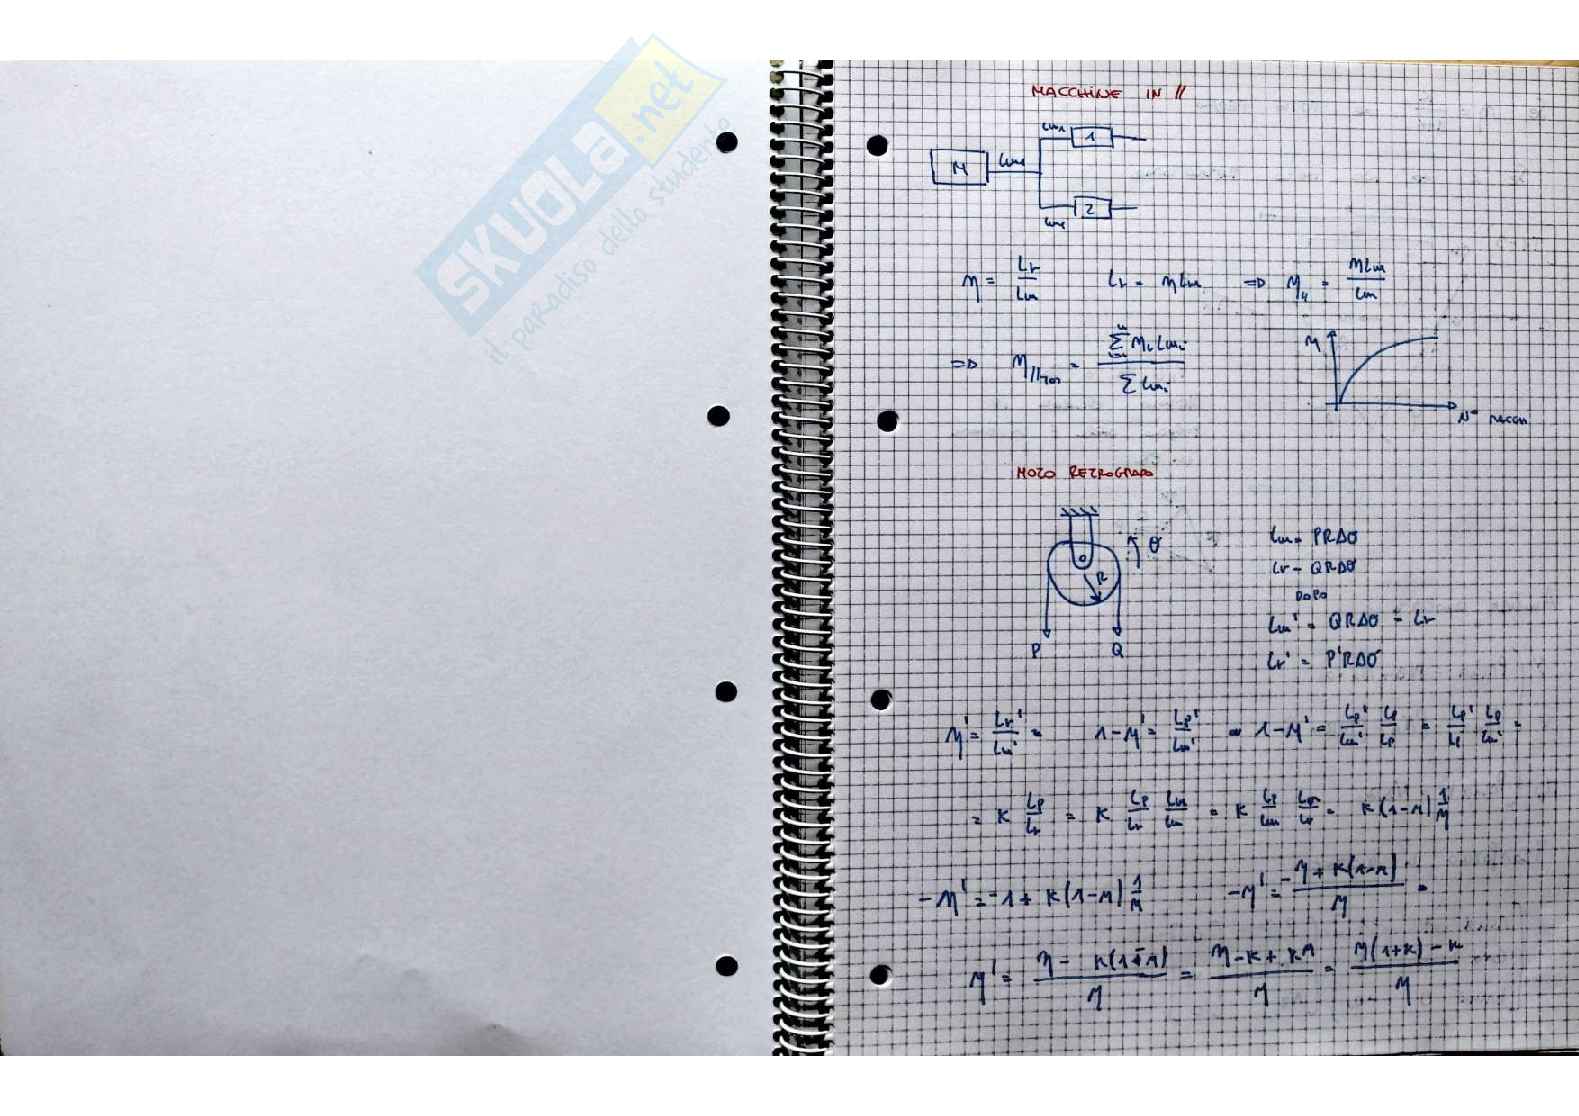 SKUOLA.net
il paradiso dello studente
MACCHINE IN //
Lm1
1
M
Lm
2
η = Lr/Lm   Lr = ηLm   ⇒ η// = ηLm/Lm
⇒ η//TOT = Σ ηi Lmi / Σ Lmi
η
N° MACCH
MOTO RETROGRADO
θ
R
P Q
Lm = PRΔθ
Lr = QRΔθ
DOPO
Lm' = QRΔθ = Lr
Lr' = P'RΔθ
η' = Lr'/Lm' =   1-η' = Lp'/Lm' ⇒ 1-η' = Lp'/Lm' Lp/Lp = Lp'/Lp Lp/Lm' =
= K Lp/Lr = K Lp/Lr Lm/Lm = K Lp/Lm Lm/Lr = K(1-η) 1/η
-η' = -1 + K(1-η) 1/η   -η' = -η + K(1-η) / η =
η' = η - K(1-η) / η = η - K + Kη / η = η(1+K) - K / η